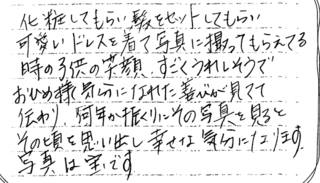 化粧してもらい髪をセットしてもらい
可愛いドレスを着て写真に撮ってもらえてる
時の子供の笑顔、すごくうれしそうで
おひめ様気分になれた喜びが見てて
伝わり、何年か振りにその写真を見ると
その頃を思い出し幸せな気分になります。
写真は宝です